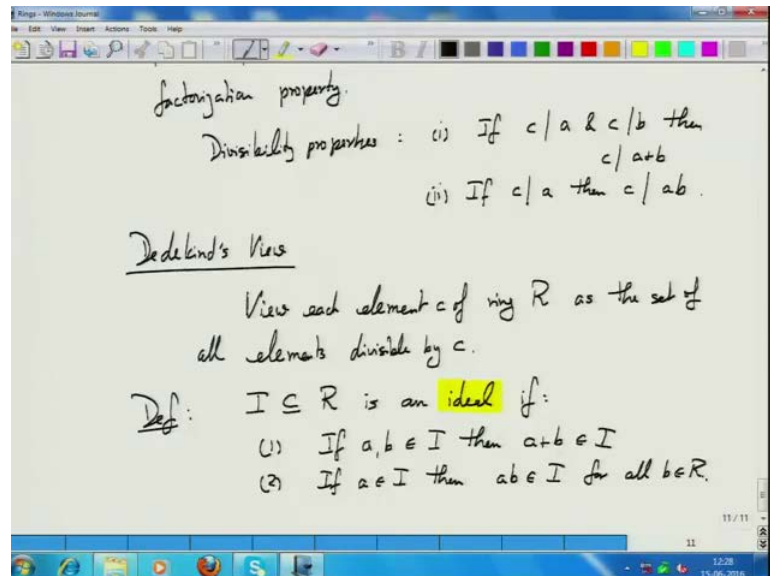 Rings - Windows Journal
File Edit View Insert Actions Tools Help
factorization property.
Divisibility properties : (i) If c | a & c | b then
c | a+b
(ii) If c | a then c | ab .
Dedekind's View
View each element c of ring R as the set of
all elements divisible by c.
Def: I ⊆ R is an ideal if:
(1) If a, b ∈ I then a+b ∈ I
(2) If a ∈ I then ab ∈ I for all b ∈ R.
11 / 11
11
12:28
15-06-2016